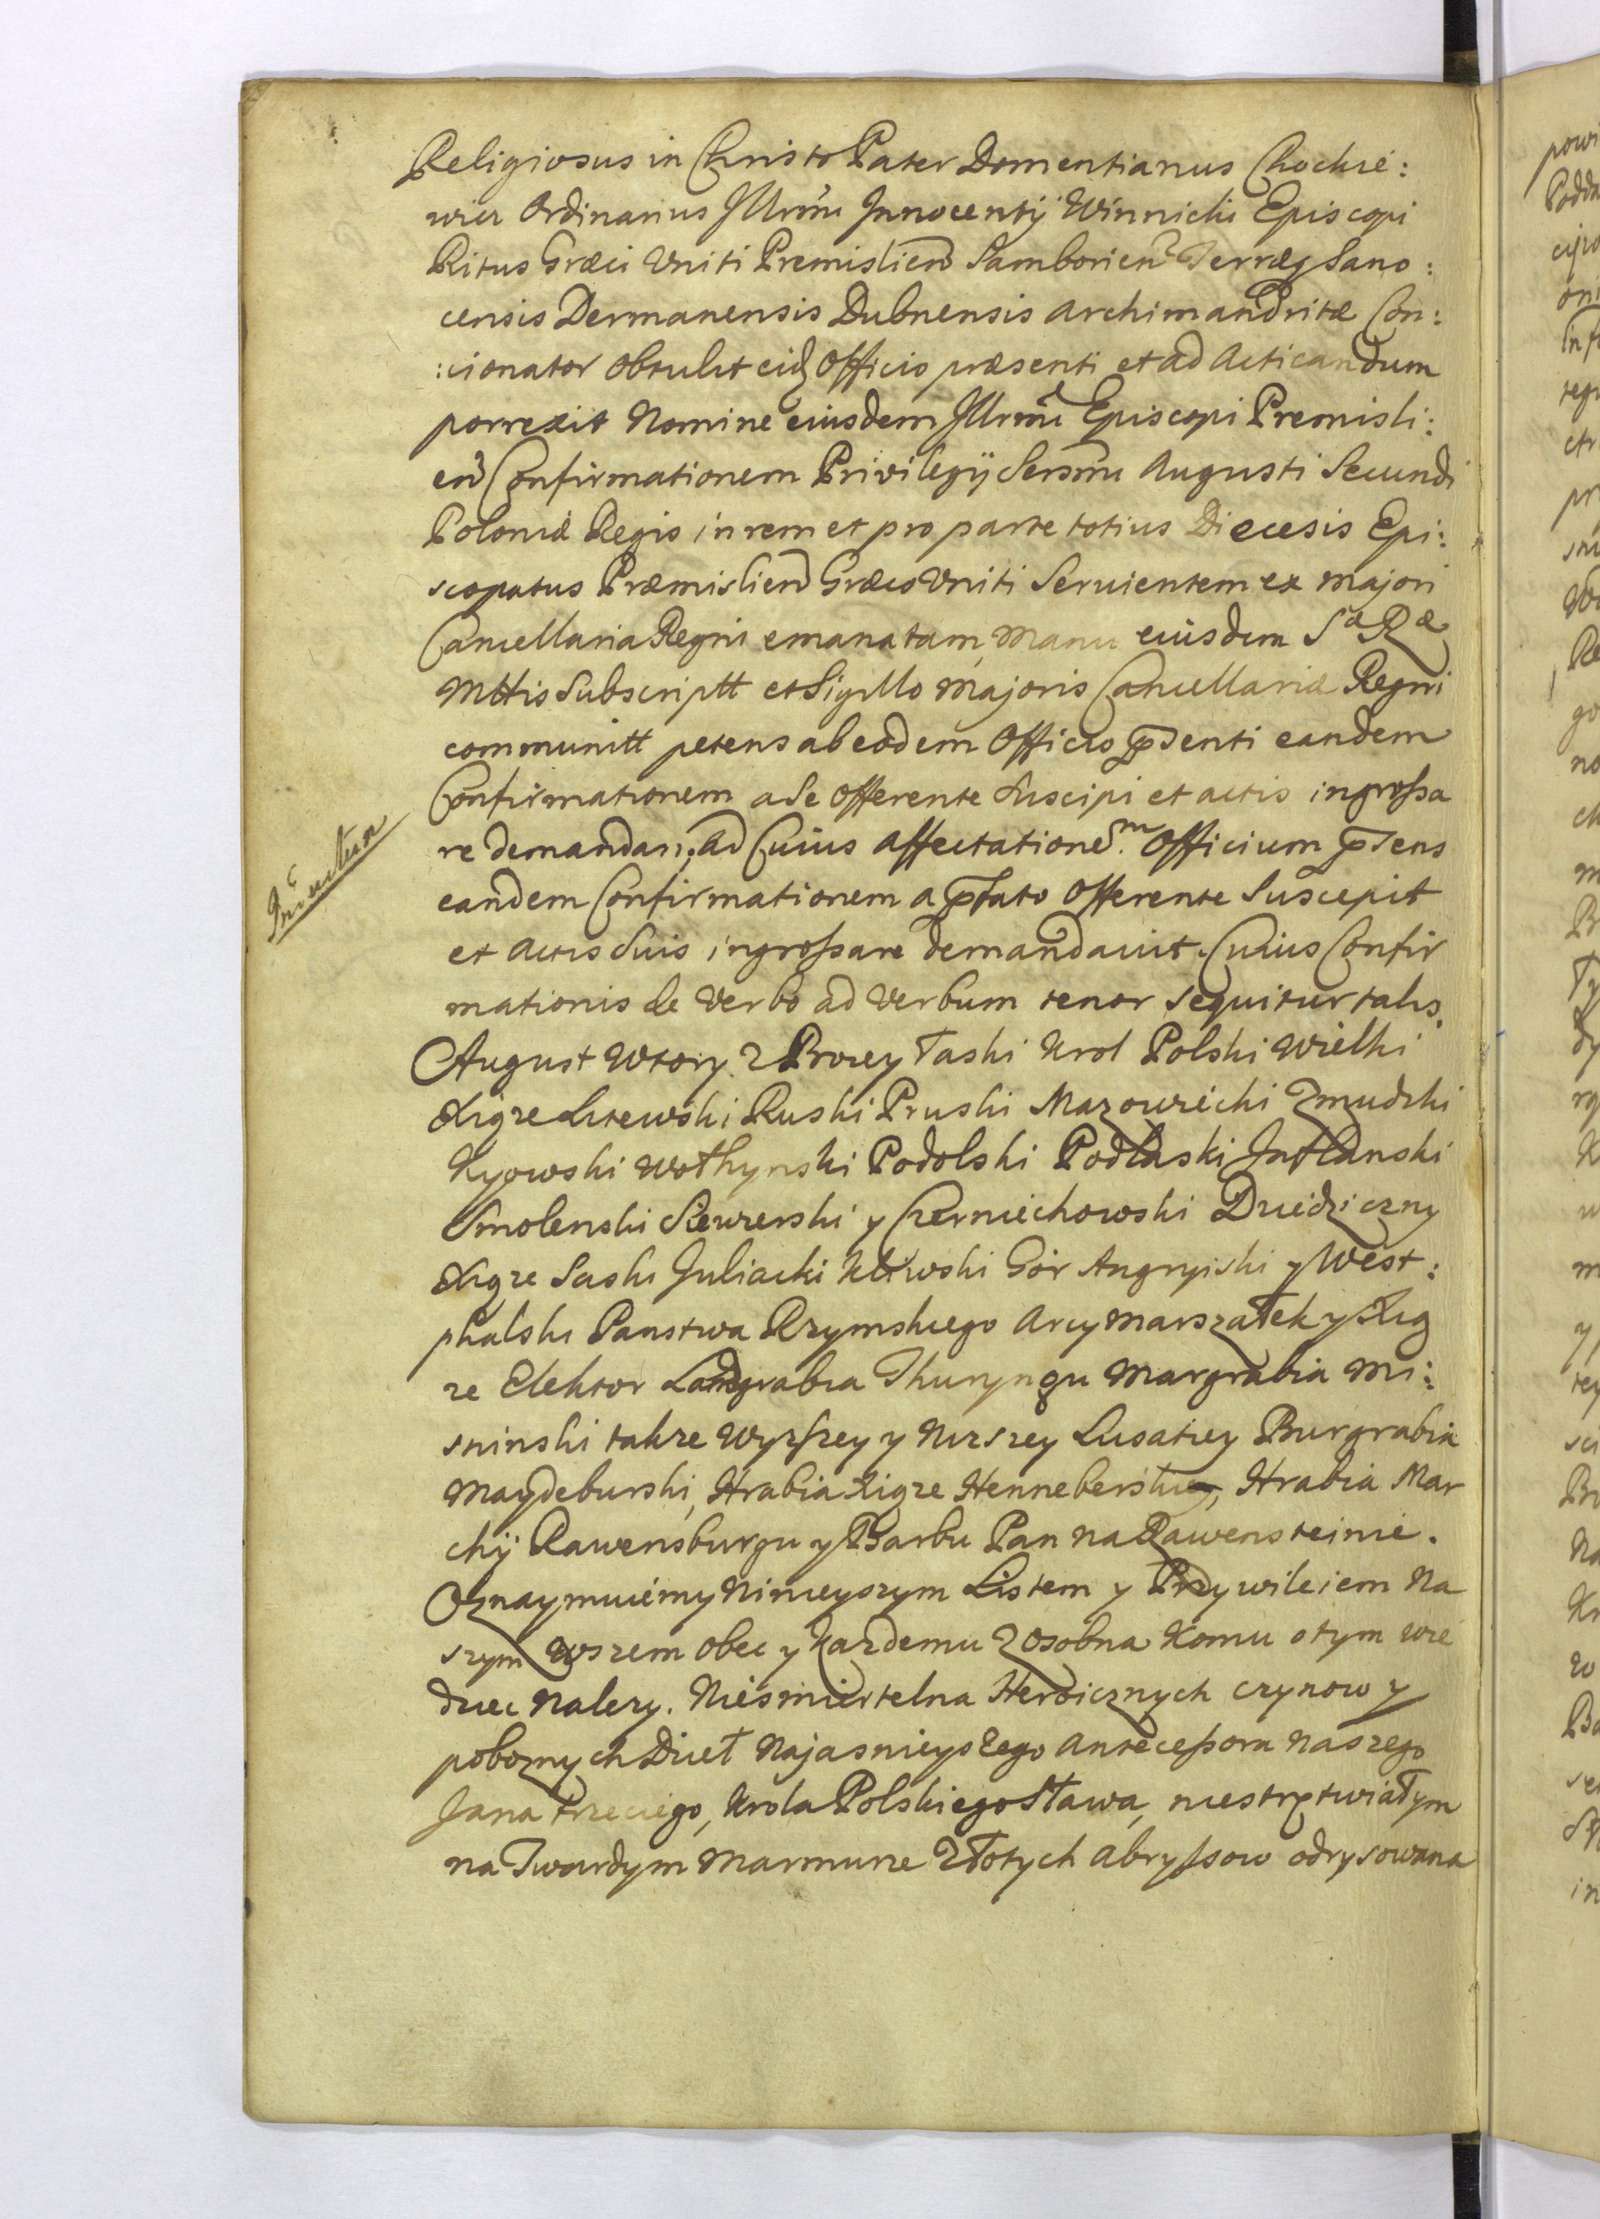 Religiosus in Christo Pater Domentianus Chockie:
wicz Ordinarius Illrmi Innocentij Winnicki Episcopi
Ritus Græci Vniti Premislien Samborien Terræq Sano:
censis Dermanensis Dubnensis Archimandritæ Con:
:cionator obtulit eidq Officio præsenti et ad Acticandum
porrexit Nomine eiusdem Illrmi Episcopi Premisli:
en Confirmationem Privilegij Sersmi Augusti Secundi
Poloniæ Regis in rem et pro parte totius Diecesis Epi:
scopatus Præmislien Græco Vniti Seruientem ex Majori
Cancellaria Regni emanatam, Manu eiusdem Sæ Ræ
Mttis Subscriptt et Sigillo Majoris Cancellariæ Regni
communitt petens ab eodem Officio pnti eandem
Confirmationem a se Offerente Suscipi et actis ingrossa
re demandari, ad Cuius affectationem Officium pns
eandem Confirmationem a pfato Offerente Suscepit
et Actis Suis ingrossare demandauit. Cuius Confir
mationis de Verbo ad Verbum tenor sequitur talis.
August Wtory z Bozey Łaski Krol Polski Wielki
Xiąze Litewski Ruski Pruski Mazowiecki Zmudzki
Kyowski Wołhynski Podolski Podlaski Inflanski
Smolenski Siewierski y Czerniechowski Dziedziczny
Xiąze Saski Juliacki Kliwski Gor Angryiski y West:
phalski Panstwa Rzymskiego Arcy Marszałek y Xią
ze Elektor Landgrabia Thuryngu Margrabia Mi:
sninski takze Wyzszey y Nizszey Lusatiey Burgrabia
Maydeburski, Hrabia Xiąze Henneberski, Hrabia Mar
chij Rawensburgu y Barbu Pan na Rawensteinie.
Oznaymuiemy Ninieyszym Listem y Przywileiem Na
szym wszem obec y kazdemu z osobna Komu o tym wie
dziec Nalezy. Niesmiertelna Heroicznych czynow y
poboznych Dzieł Najasnieyszego Antecessora Naszego
Jana trzeciego, Krola Polskiego Sława, niestrętwiałym
na Twardym Marmurze Złotych Abryssow odrysowana